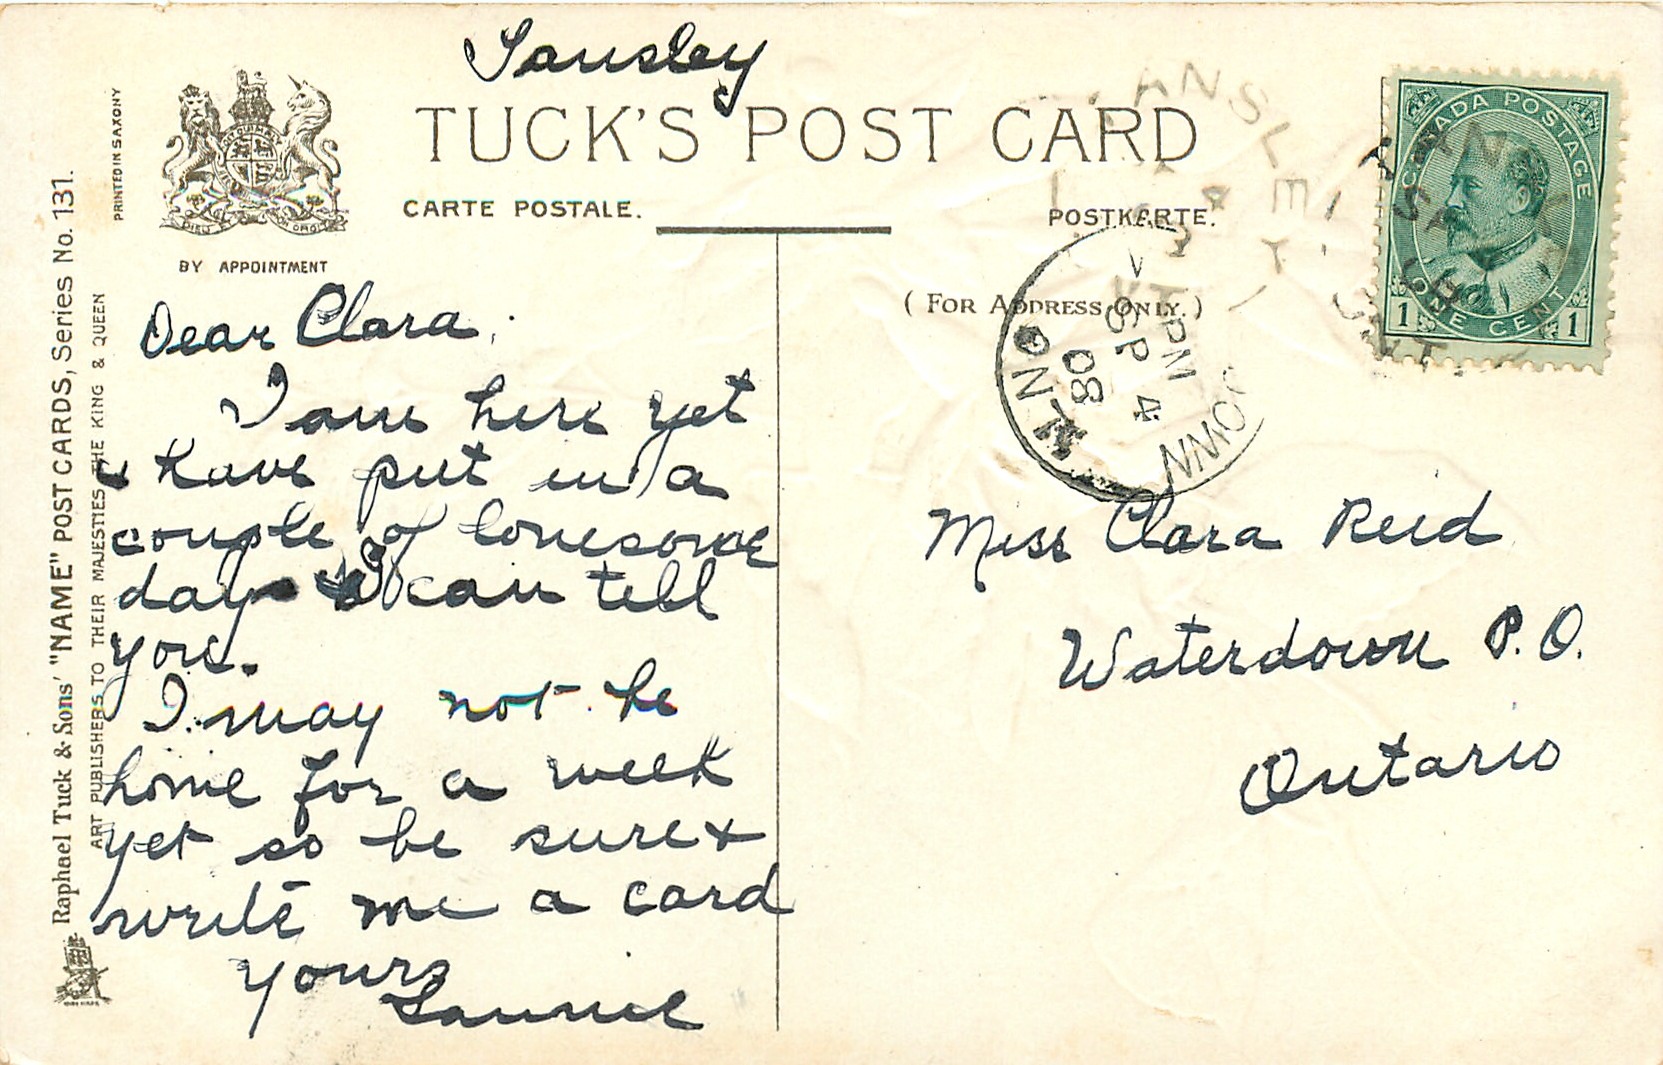 Tansley
TUCK'S POST CARD
CARTE POSTALE.
POSTKARTE.
BY APPOINTMENT
(FOR ADDRESS ONLY.)
PRINTED IN SAXONY
Raphael Tuck & Sons' "NAME" POST CARDS, Series No. 131.
ART PUBLISHERS TO THEIR MAJESTIES THE KING & QUEEN
Dear Clara,
I am here yet
& have put in a
couple of lonesome
days I can tell
you.
I may not be
home for a week
yet so be sure &
write me a card
Yours
Miss Clara Reid
Waterdown P.O.
Ontario
CANADA POSTAGE
ONE CENT
1 1
TANSLEY
PM
SP 4
08
ONT